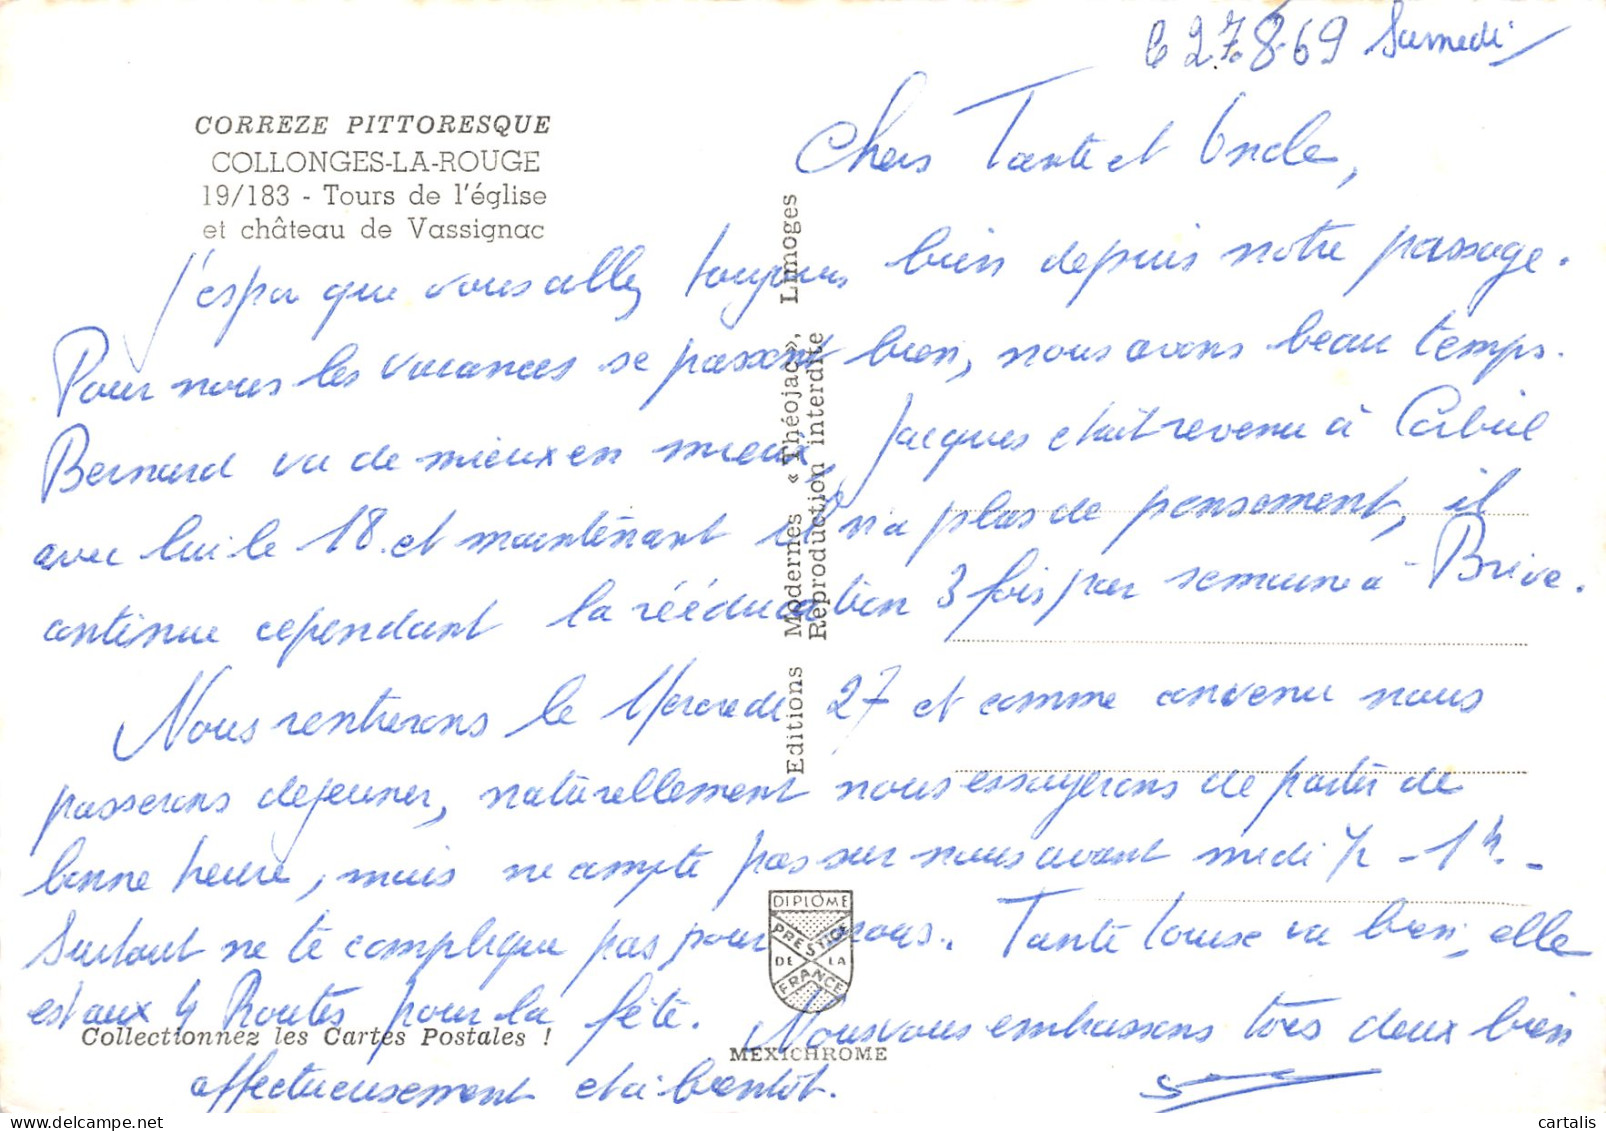 27.8.69 Samedi
CORREZE PITTORESQUE
COLLONGES-LA-ROUGE
19/183 - Tours de l'église
et château de Vassignac
Chers Tante et Oncle,
J'espère que vous allez toujours bien depuis notre passage.
Pour nous les vacances se passent bien, nous avons beau temps.
Bernard va de mieux en mieux, Jacques était revenu à Corbeil
avec lui le 18 et maintenant il n'a plus de pansement, il
continue cependant la rééducation 3 fois par semaine à Brive.
Nous rentrerons le Mercredi 27 et comme convenu nous
passerons déjeuner, naturellement nous essayerons de partir de
bonne heure, mais ne compte pas sur nous avant midi ½ - 1h. -
Surtout ne te complique pas pour nous. Tante Louise va bien, elle
est aux 4 Routes pour la fête. Nous vous embrassons tous deux bien
affectueusement et à bientôt.
Editions Modernes « Théojac », Limoges
Reproduction interdite
DIPLÔME
PRESTIGE
DE LA
FRANCE
Collectionnez les Cartes Postales !
MEXICHROME
cartalis